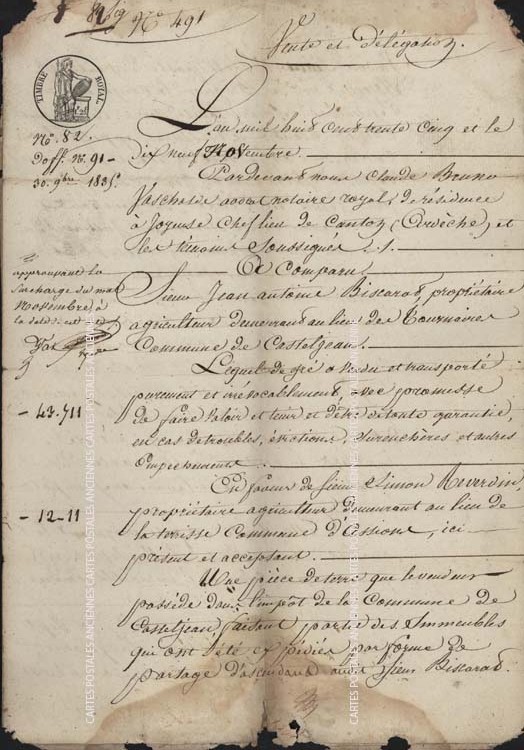 N.ro 491
Vente et délégation.
TIMBRE ROYAL
N.o 82.
Doss. N.o 91
30. 9bre 1835.
L'an mil huit cent trente cinq et le
dix neuf Novembre.
Pardevant nous Claude Bruno
Paschalis avocat notaire royal de résidence
à Joyeuse chef lieu de canton (Ardèche) et
les témoins soussignés
A Comparu
approuvant la
surcharge du mot
Novembre à
la date
Sieur Jean antoine Biscarat, propriétaire
agriculteur demeurant au lieu des Tournaires
Commune de Casteljeau.
Lequel de gré a vendu et transporté
purement et irrévocablement, avec promesse
- 43.711
de faire valoir et tenir et d'être de toute garantie,
en cas de troubles, évictions, surenchères et autres
empêchements.
En faveur de sieur Simon Reverdin,
- 12-11
propriétaire agriculteur demeurant au lieu de
la terrisse Commune d'Assions, ici
présent et acceptant.
Une pièce de terre que le vendeur
possède dans l'impôt de la Commune de
Casteljeau, faisant partie des Immeubles
qui ont été expédiés par forme de
partage d'ascendant au sieur Biscarat.
CARTES POSTALES ANCIENNES CARTES POSTALES ANCIENNES CARTES POSTALES ANCIENNES
CARTES POSTALES ANCIENNES CARTES POSTALES ANCIENNES CARTES POSTALES ANCIENNES